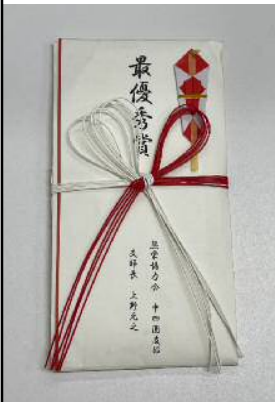 最優秀賞
熊栄協力会 中四国支部
支部長 上野元之